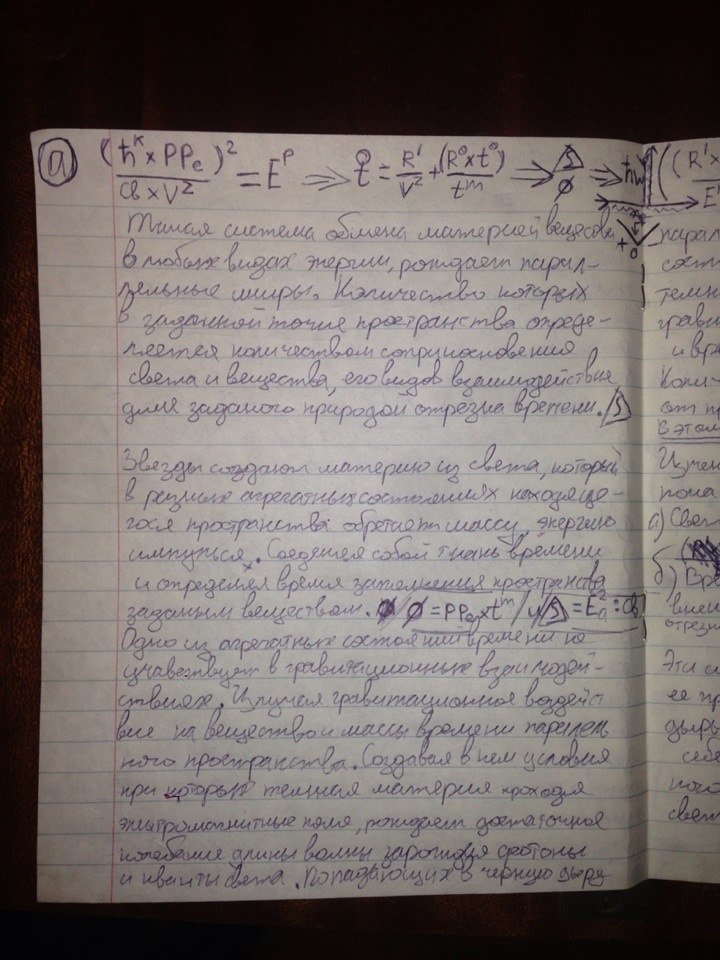 а) (ħᵏ × PPₑ)² / (Cв × V²) = Eᴾ ⇒ t = R¹/V² + (R⁰ × t⁰)/tᵐ ⇒ S/φ ⇒ ħw ((R¹×
E
Такая система обмена материей вещества
в любых видах энергии, рождает парал-
лельные миры. Количество которых
в заданной точке пространства опреде-
ляется количеством соприкосновения
света и вещества, его видов взаимодействие
для заданого природой отрезка времени. S
Звезды создают материю из света, который
в разных агрегатных состояниях находяще-
гося пространства обретает массу, энергию
импульса. Соеденяя собой ткань времени
и определяя время заполнения пространства
заданым веществом. φ = PPₑ × tᵐ / и S = E²ₐ : Cв
Одно из агрегатных состояний времени не
учавствует в гравитационных взаимодей-
ствиях. Излучая гравитационное воздейст
вие на вещество и массы времени паралель
ного пространства. Создавая в нем условия
при которых темная материя проходя
электромагнитные поля, рождает достаточное
колебание длины волны зарождая фотоны
и кванты света. Попадающих в черную дыру
парал
сост
темн
грави
и вре
Коли-
от пр
в этом
Излучен
пома
а) Свет
б) Вре
отрезк
Эти
ее пр
дыры
себе
ного
свет